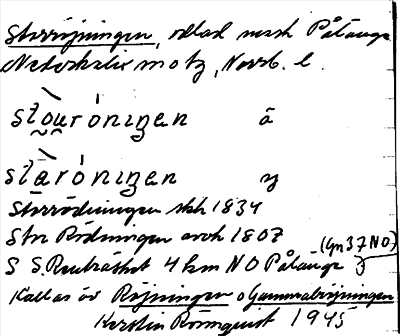 Storröjningen, odlad mark Pålänge
Nederkalix motz, Norrb. l.
stouróningen ä
stàróningen y
Storrödningen skh 1834
Stor Rödningen avch 1807
(Gn37NO)
S S. 4 km NO Pålänge
Kallas äv Röjningen o Gammalröjningen
Kerstin Rönnquist 1945